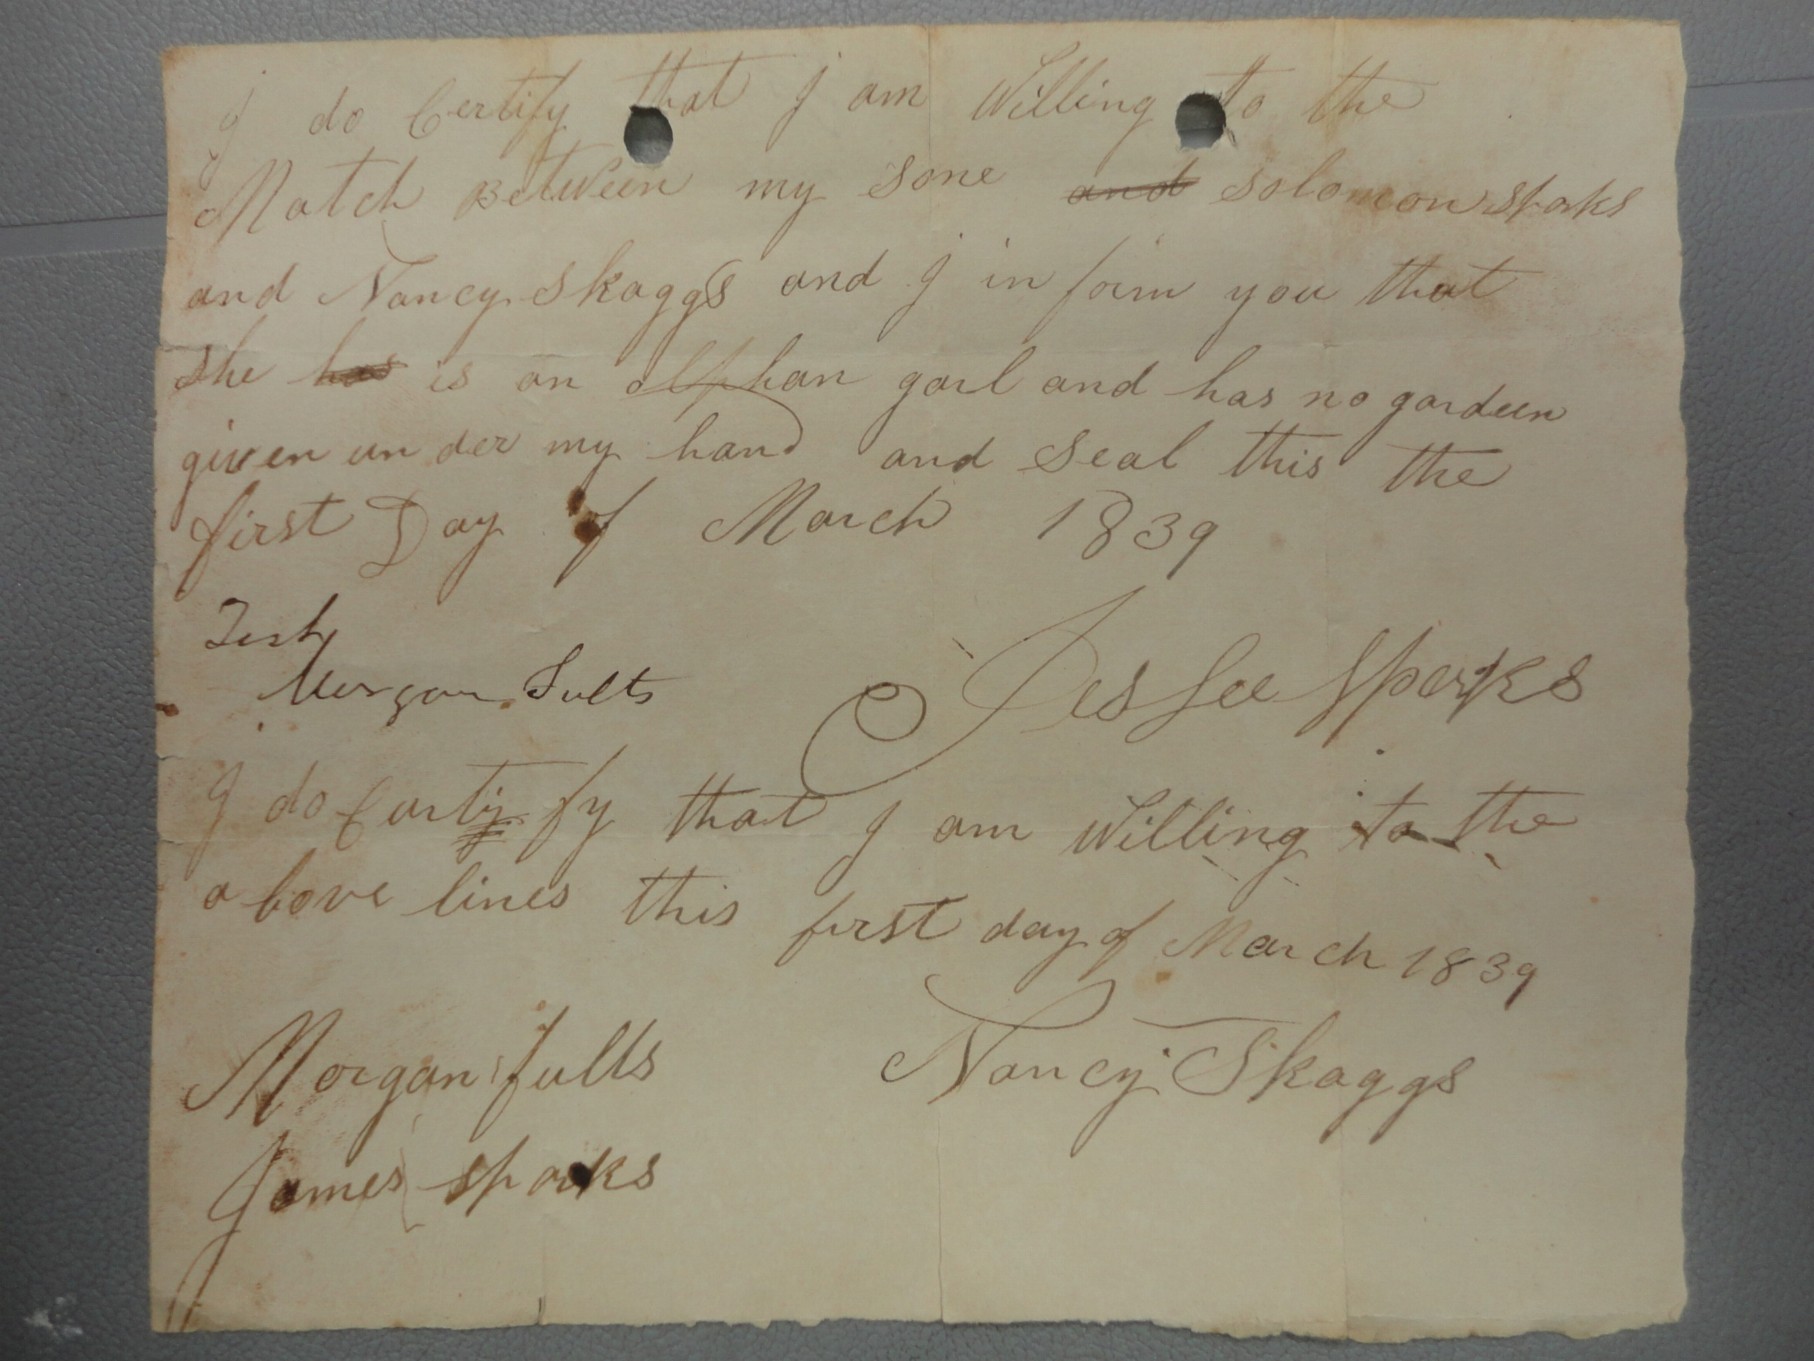 I do Certify that I am Willing to the
Match Between my sone and solomon sparks
and Nancy Skaggs and I in form you that
she has is an olphan garl and has no gardeen
given un der my hand and seal this the
first Day of March 1839
Test
Morgan Fults
Jessee Sparks
I do Certify fy that I am Willing to the
a bove lines this first day of March 1839
Morgan fults
Nancy Skaggs
James sparks